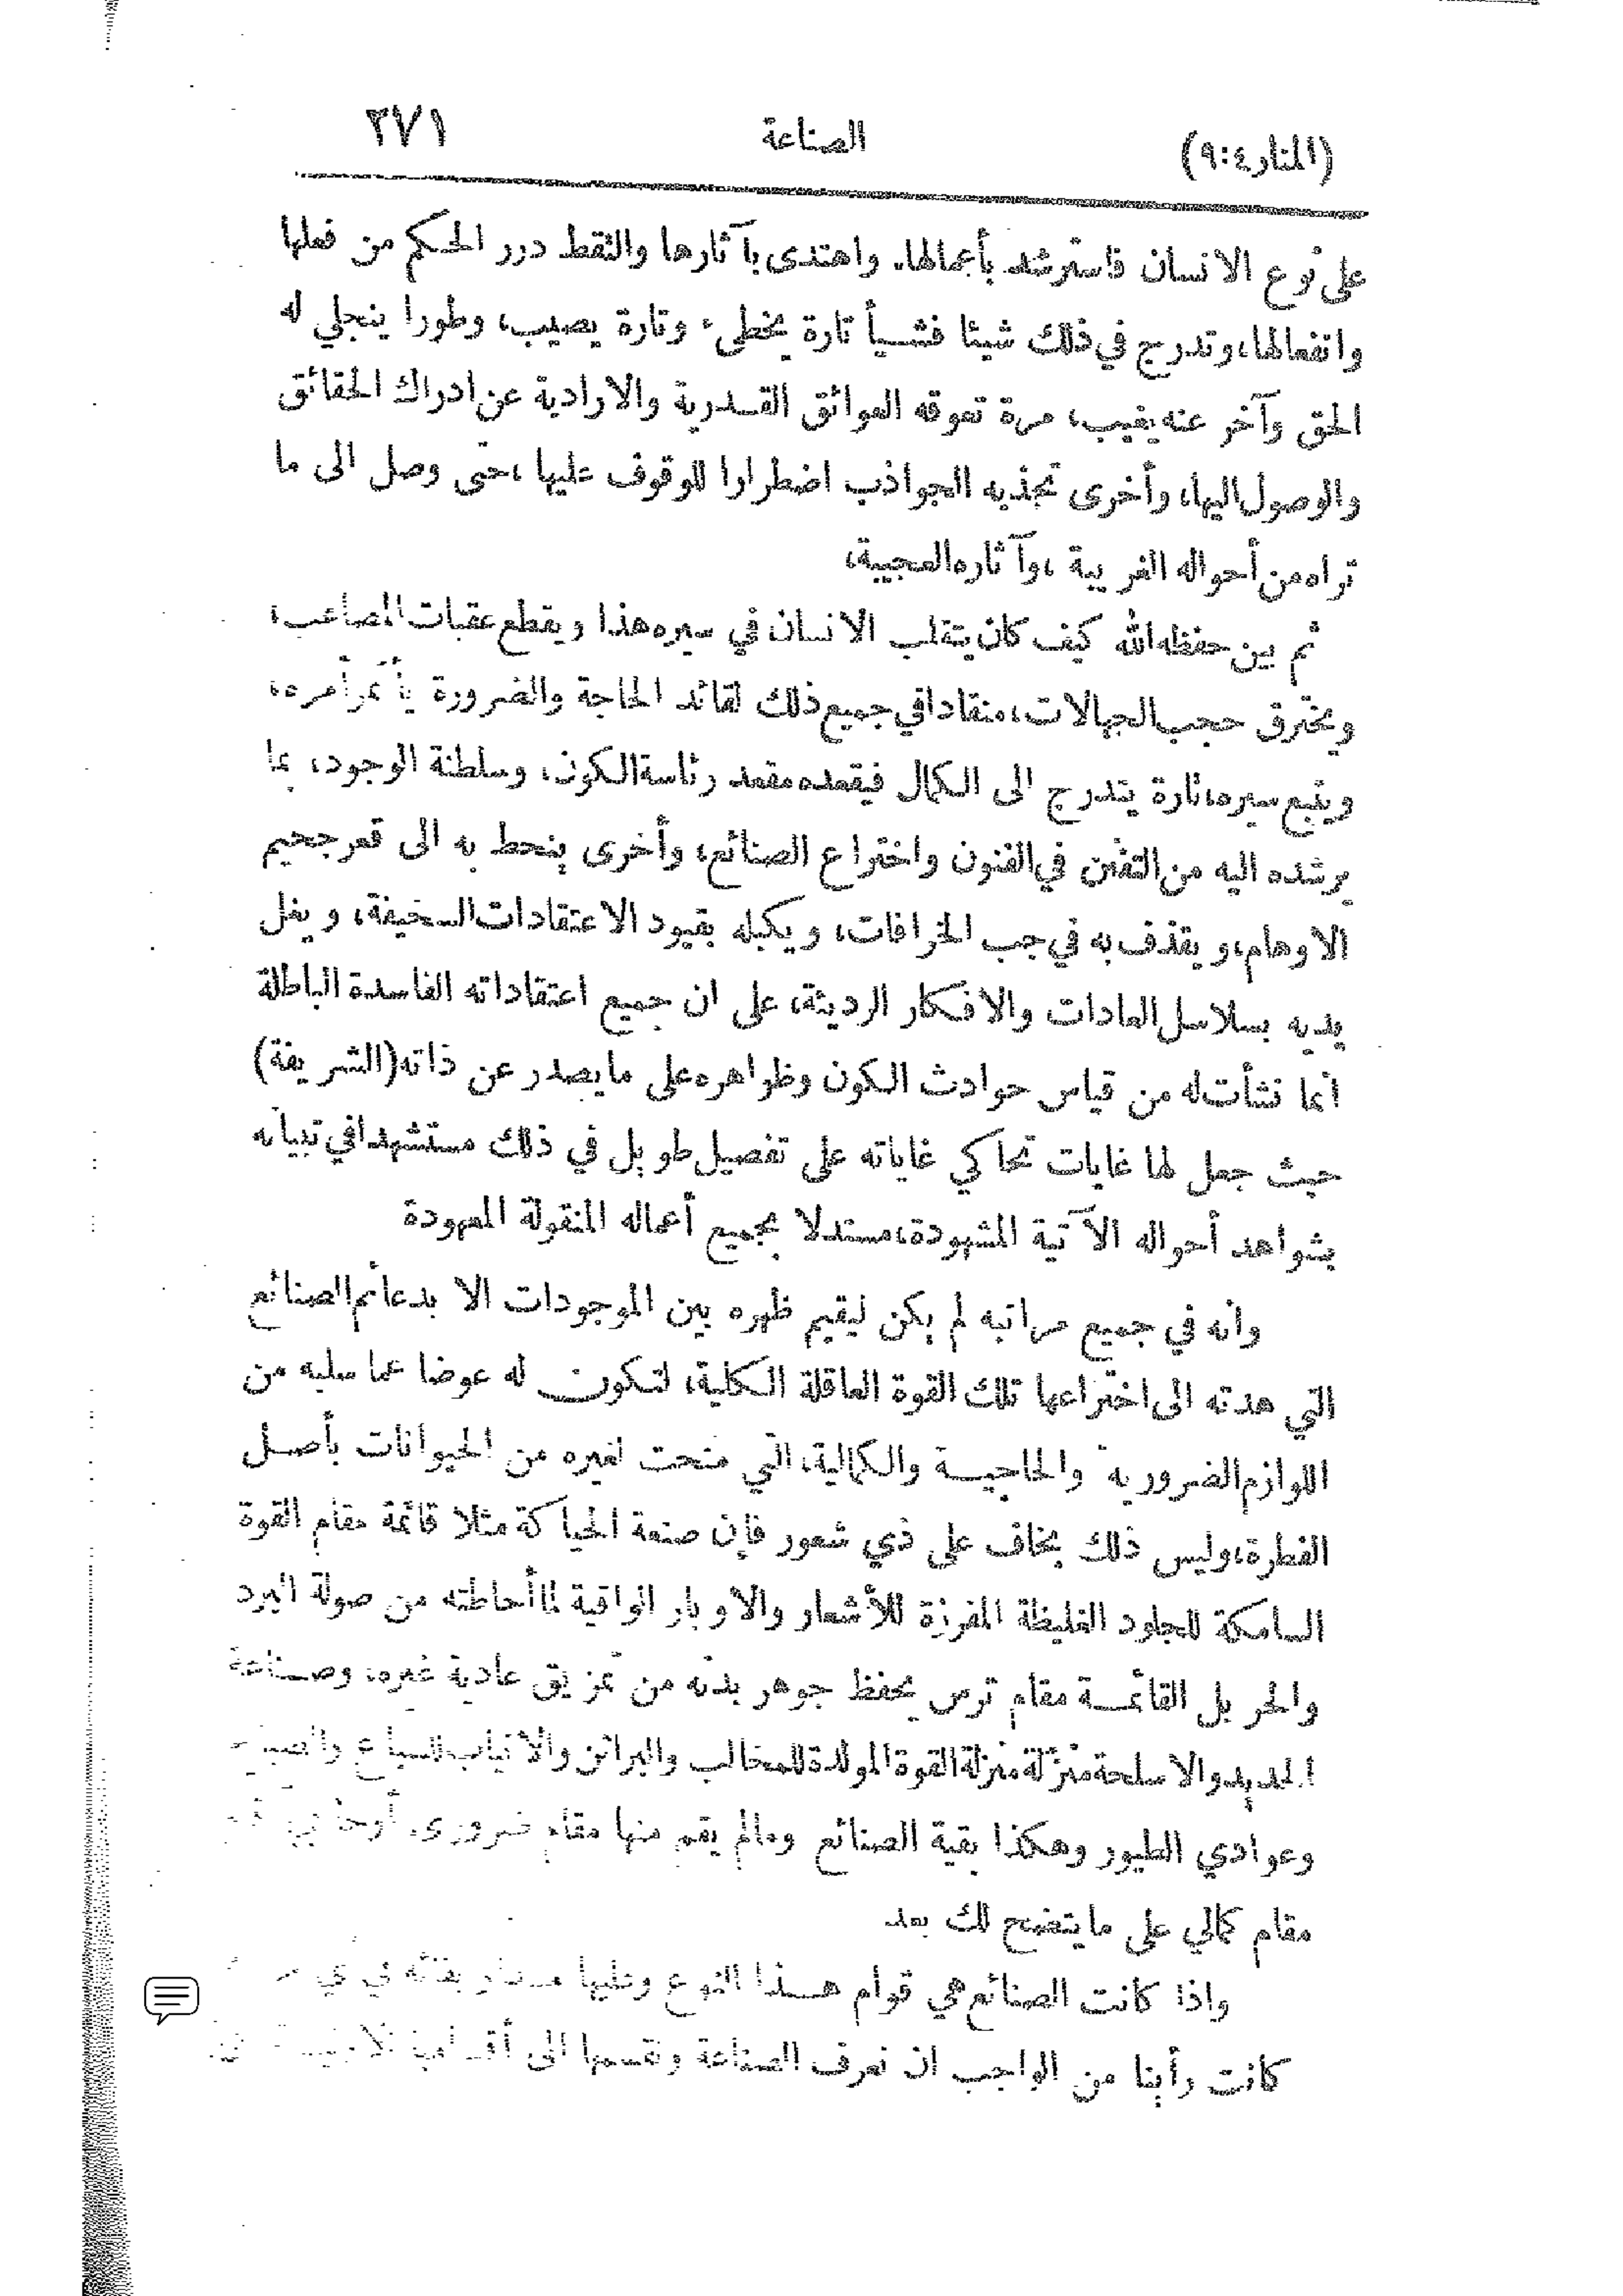 (المنار ٤:٩) الصناعة ٣٧١
على نوع الانسان فاسترشد بأعمالها. واهتدى بآثارها والتقط درر الحكم من فعلها
وانفعالها، وتدرج في ذلك شيئا فشيأ تارة يخطئ وتارة يصيب، وطورا ينجلي له
الحق وآخر عنه يغيب، مرة تعوقه العوائق القدرية والارادية عن ادراك الحقائق
والوصول اليها، وأخرى تجذبه الجواذب اضطرارا للوقوف عليها، حتى وصل الى ما
تراه من أحواله الغريبة، وآثاره العجيبة،
ثم بين حفظه الله كيف كان يتقلب الانسان في سيره هذا ويقطع عقبات المصاعب،
ويخترق حجب الجهالات، منقادا في جميع ذلك لقائد الحاجة والضرورة يأتمر أمره،
ويتبع سيره، تارة يتدرج الى الكمال فيقعده مقعد رئاسة الكون، وسلطنة الوجود، بما
يرشده اليه من التفنن في الفنون واختراع الصنائع، وأخرى ينحط به الى قعر جحيم
الاوهام، ويقذف به في جب الخرافات، ويكبله بقيود الاعتقادات السخيفة، ويغل
يديه بسلاسل العادات والافكار الرديئة، على ان جميع اعتقاداته الفاسدة الباطلة
انما نشأت له من قياس حوادث الكون وظواهره على ما يصدر عن ذاته (الشريفة)
حيث جعل لها غايات تحاكي غاياته على تفصيل طويل في ذلك مستشهدا في تبيانه
بشواهد أحواله الآتية المشهودة، مستدلا بجميع أعماله المنقولة المعهودة
وانه في جميع مراتبه لم يكن ليقيم ظهره بين الموجودات الا بدعائم الصنائع
التي هدته الى اختراعها تلك القوة العاقلة الكلية، لتكون له عوضا عما سلبه من
اللوازم الضرورية والحاجية والكمالية، التي منحت لغيره من الحيوانات بأصل
الفطرة، وليس ذلك بخاف على ذي شعور فإن صنعة الحياكة مثلا قائمة مقام القوة
السامكة للجلود الغليظة المفرزة للأشعار والاوبار الواقية لما أحاطته من صولة البرد
والحر بل القائمة مقام ترس يحفظ جوهر بدنه من تمزيق عادية غيره، وصناعة
الحديد والاسلحة منزلة منزلة القوة المولدة للمخالب والبراثن والانياب للسباع
وعوادي الطيور وهكذا بقية الصنائع ومالم يقم منها مقام ضروري
مقام كمالي على ما يتضح لك بعد
واذا كانت الصنائع هي قوام هذا النوع وعليها مدار بقائه في
كانت رأينا من الواجب ان نعرف الصناعة ونقسمها الى